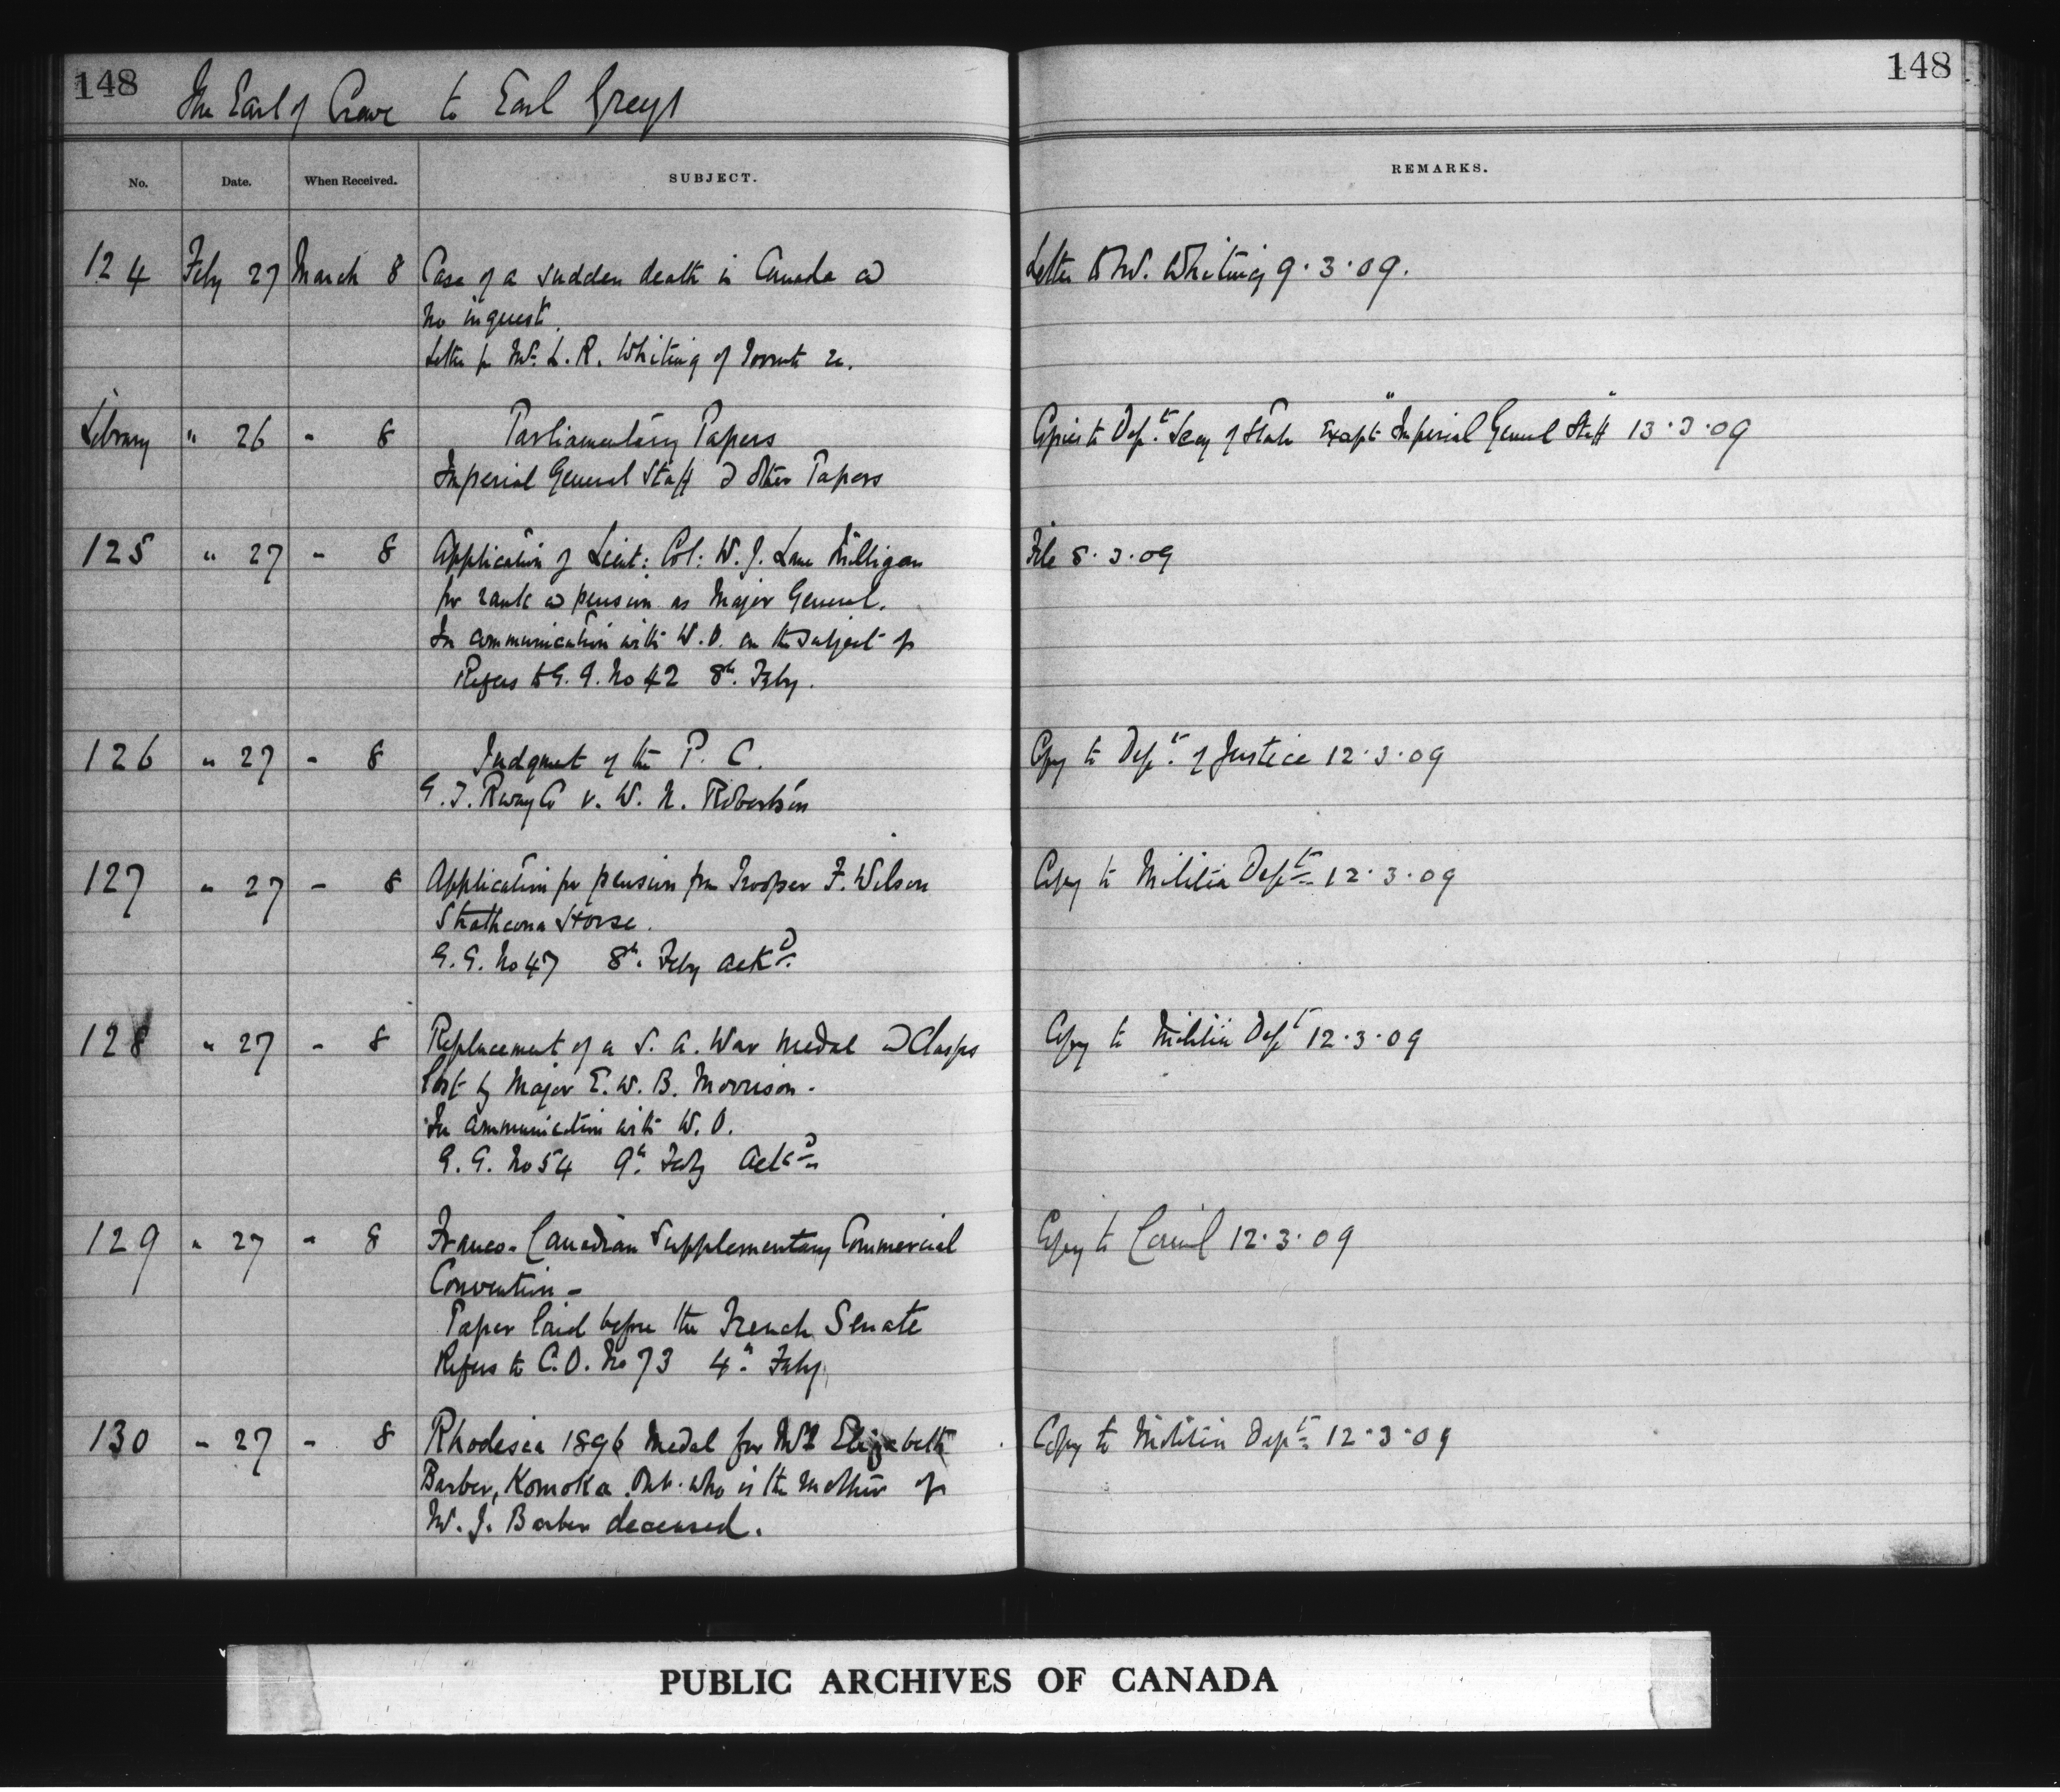 148
148
The Earl of Crewe to Earl Grey
No. Date. When Received. SUBJECT. REMARKS.
124 Feby 27 March 8 Case of a sudden death in Canada & Letter to Mr. Whiting 9.3.09.
no inquest.
Letter fr Mr. L. R. Whiting of Toronto
Library " 26 - 8 Parliamentary Papers Copies to Dept. Secy of State except "Imperial General Staff" 13.3.09
Imperial General Staff & other Papers
125 " 27 - 8 Application of Lieut: Col: W. J. Lane Milligan File 8.3.09
for rank & pension as Major General.
In communication with W.O. on the subject of
Refers to G.G. No 42 8th. Feby.
126 " 27 - 8 Judgment of the P. C. Copy to Dept. of Justice 12.3.09
G. T. Rway Co v. W. N. Robertson
127 " 27 - 8 Application for pension from Trooper F. Wilson Copy to Militia Dept. 12.3.09
Strathcona Horse.
G. G. No 47 8th. Feby ackd.
128 " 27 - 8 Replacement of a S. A. War Medal & Clasps Copy to Militia Dept 12.3.09
lost by Major E. W. B. Morrison.
In communication with W. O.
G. G. No 54 9th. Feby ackd.
129 " 27 - 8 Franco-Canadian Supplementary Commercial Copy to Council 12.3.09
Convention -
Paper laid before the French Senate
Refers to C.O. No 73 4th. Feby
130 - 27 - 8 Rhodesia 1896 Medal for Mrs Elizabeth Copy to Militia Dept. 12.3.09
Barber, Komoka Ont. who is the mother of
W. J. Barber deceased.
PUBLIC ARCHIVES OF CANADA